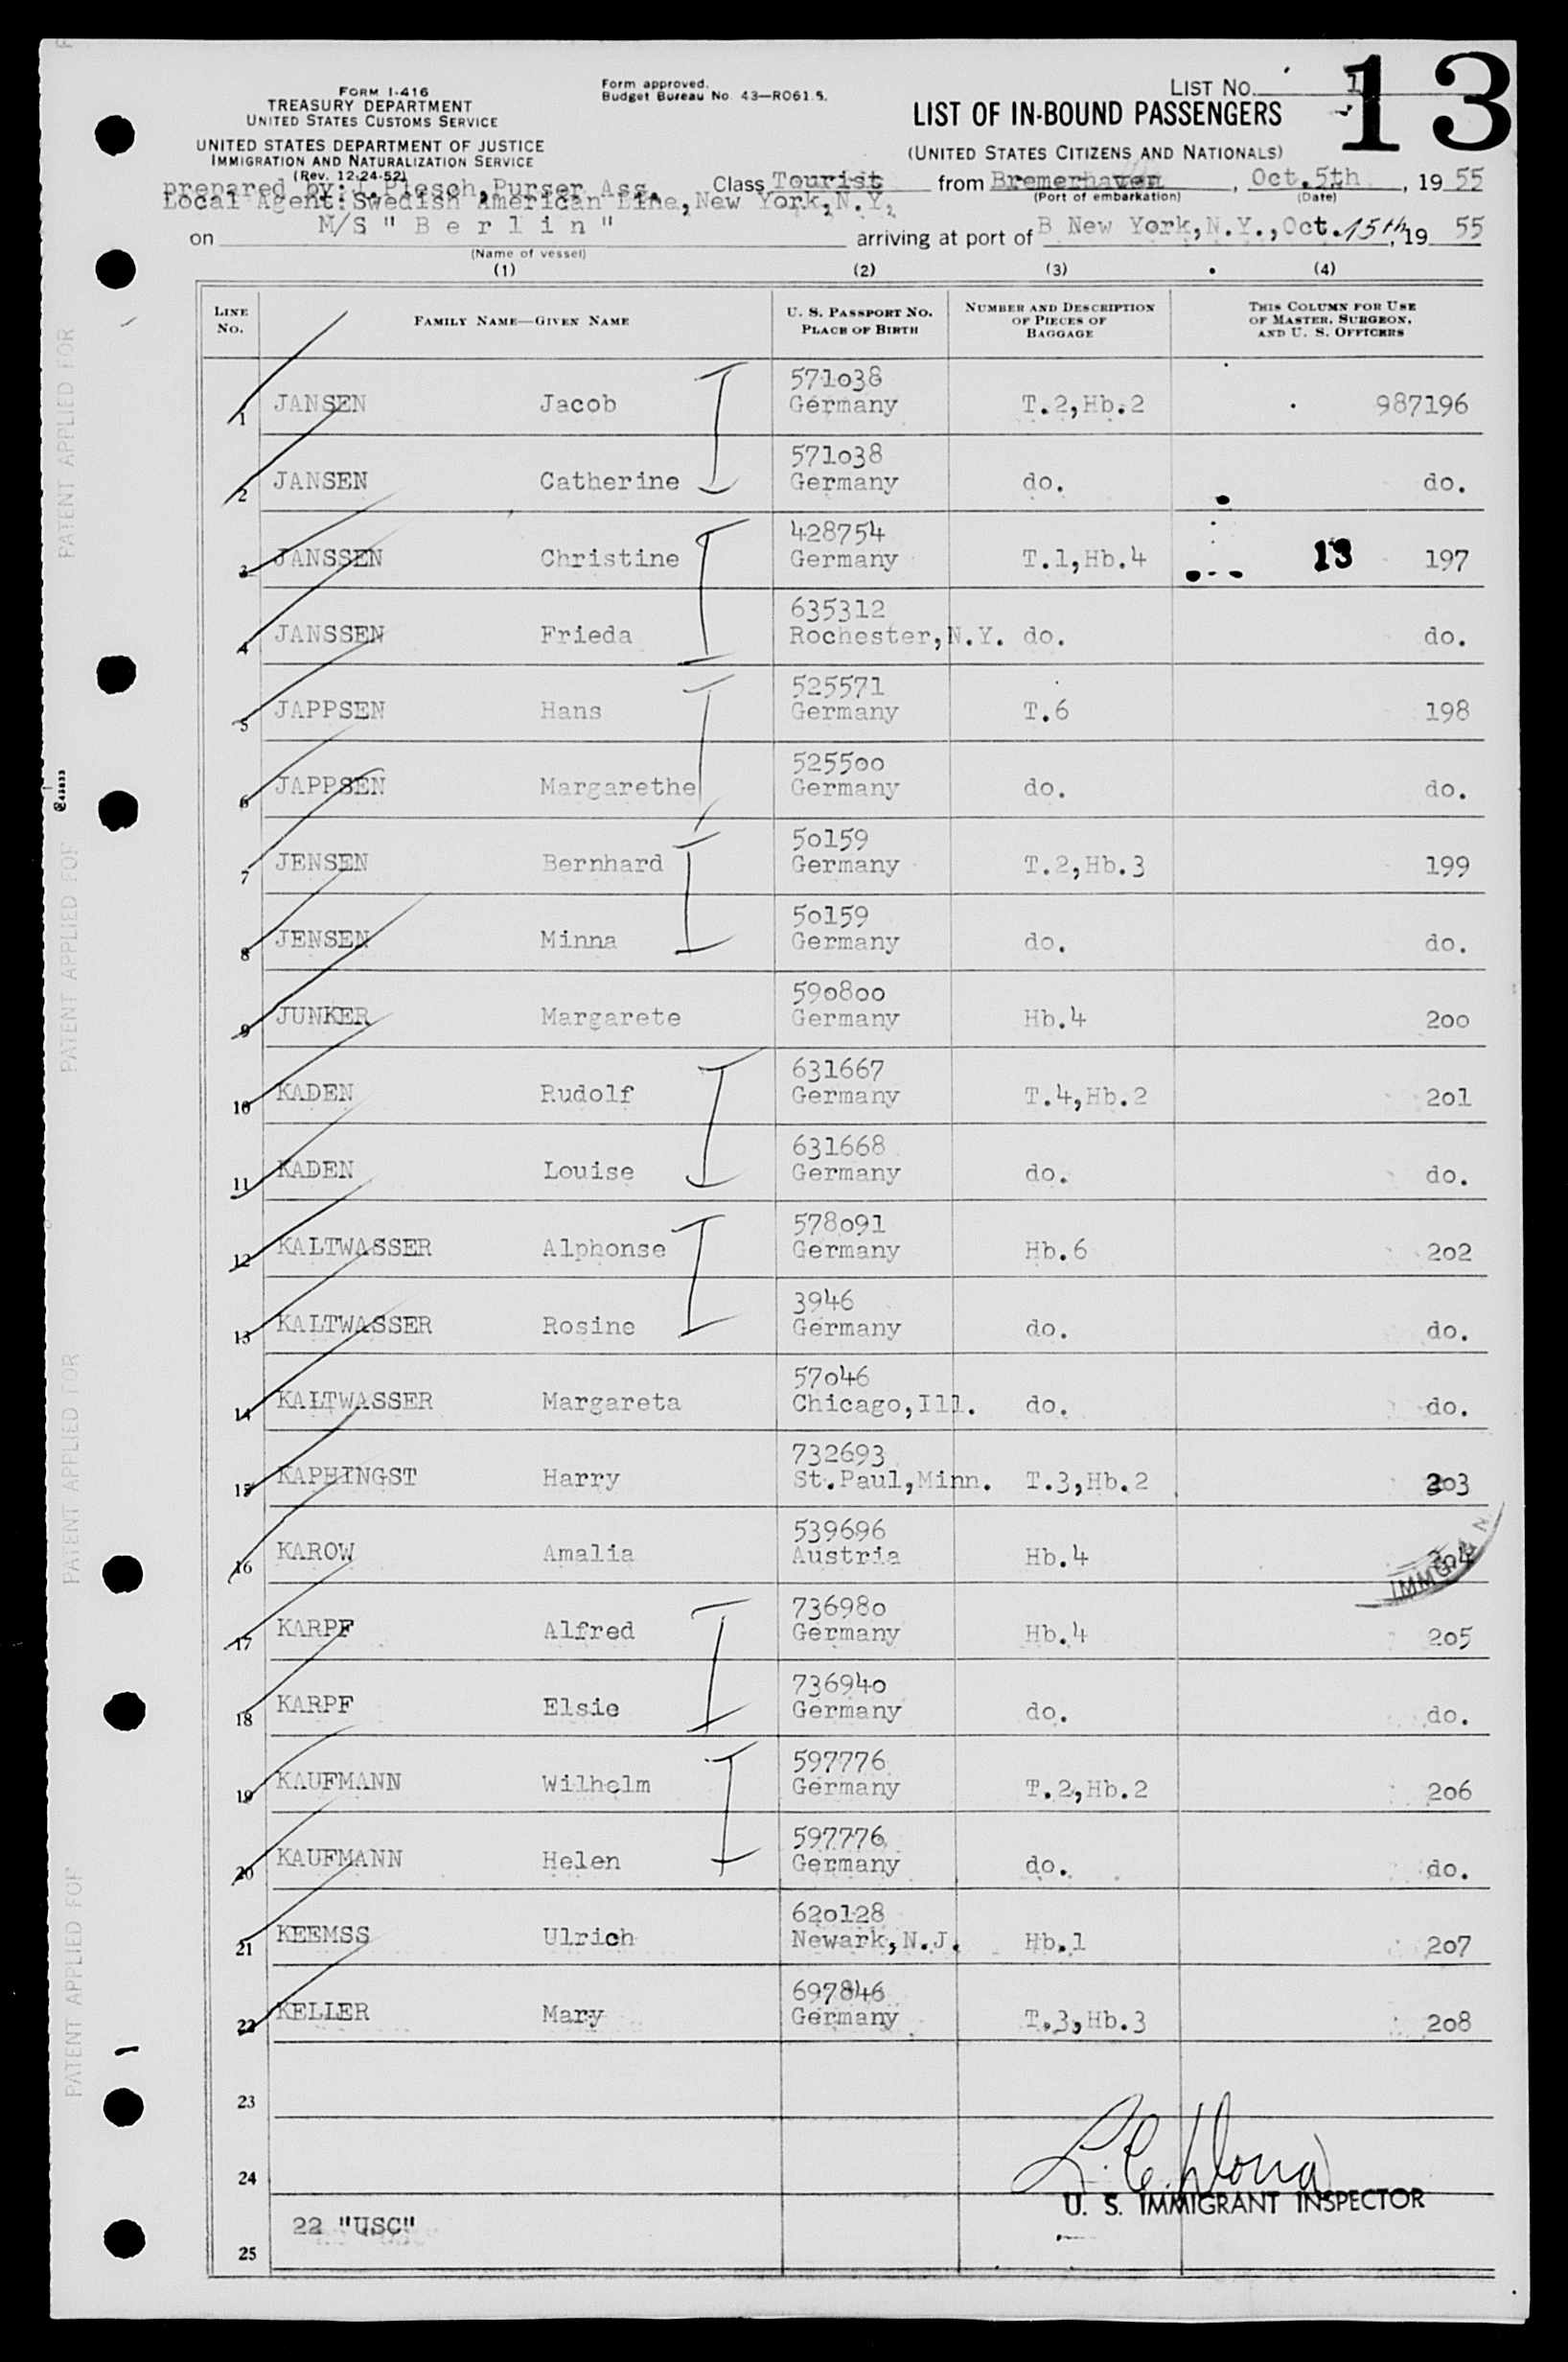 FORM I-416
TREASURY DEPARTMENT
UNITED STATES CUSTOMS SERVICE
UNITED STATES DEPARTMENT OF JUSTICE
IMMIGRATION AND NATURALIZATION SERVICE
(Rev. 12-24-52)
Form approved.
Budget Bureau No. 43—RO61.5.
LIST No. 1
13
LIST OF IN-BOUND PASSENGERS
(UNITED STATES CITIZENS AND NATIONALS)
prepared by: J. Plesch, Purser Ass. Class Tourist from Bremerhaven, Oct. 5th, 19 55
(Port of embarkation) (Date)
Local Agent: Swedish American Line, New York, N.Y.
on M/S "Berlin" arriving at port of B New York, N.Y., Oct. 15th, 19 55
(Name of vessel)
(1) (2) (3) (4)
LINE No. FAMILY NAME—GIVEN NAME U. S. PASSPORT No. PLACE OF BIRTH NUMBER AND DESCRIPTION OF PIECES OF BAGGAGE THIS COLUMN FOR USE OF MASTER, SURGEON, AND U. S. OFFICERS
571038
1 JANSEN Jacob Germany T.2,Hb.2 987196
571038
2 JANSEN Catherine Germany do. do.
428754
3 JANSSEN Christine Germany T.1,Hb.4 13 197
635312
4 JANSSEN Frieda Rochester,N.Y. do. do.
525571
5 JAPPSEN Hans Germany T.6 198
525500
6 JAPPSEN Margarethe Germany do. do.
50159
7 JENSEN Bernhard Germany T.2,Hb.3 199
50159
8 JENSEN Minna Germany do. do.
590800
9 JUNKER Margarete Germany Hb.4 200
631667
10 KADEN Rudolf Germany T.4,Hb.2 201
631668
11 KADEN Louise Germany do. do.
578091
12 KALTWASSER Alphonse Germany Hb.6 202
3946
13 KALTWASSER Rosine Germany do. do.
57046
14 KALTWASSER Margareta Chicago,Ill. do. do.
732693
15 KAPHINGST Harry St.Paul,Minn. T.3,Hb.2 203
539696
16 KAROW Amalia Austria Hb.4 204
736980
17 KARPF Alfred Germany Hb.4 205
736940
18 KARPF Elsie Germany do. do.
597776
19 KAUFMANN Wilhelm Germany T.2,Hb.2 206
597776
20 KAUFMANN Helen Germany do. do.
620128
21 KEEMSS Ulrich Newark,N.J. Hb.1 207
697846
22 KELLER Mary Germany T.3,Hb.3 208
23
24
U. S. IMMIGRANT INSPECTOR
22 "USC"
25
PATENT APPLIED FOR
PATENT APPLIED FOR
PATENT APPLIED FOR
PATENT APPLIED FOR